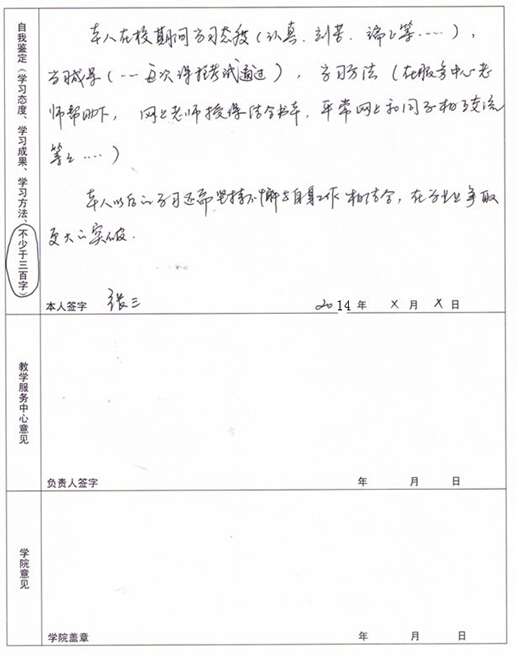 自我鉴定（学习态度、学习成果、学习方法、不少于三百字）
本人在校期间学习态度（认真、刻苦、端正等……），
学习成果（一一每次课程考试通过），学习方法（在服务中心老
师帮助下，网上老师授课结合书本，平常网上和同学相互交流
等等……）
本人以后的学习还需坚持不懈与自身工作相结合，在学业争取
更大的突破.
本人签字 张三 2014年 X月 X日
教学服务中心意见
负责人签字 年 月 日
学院意见
学院盖章 年 月 日